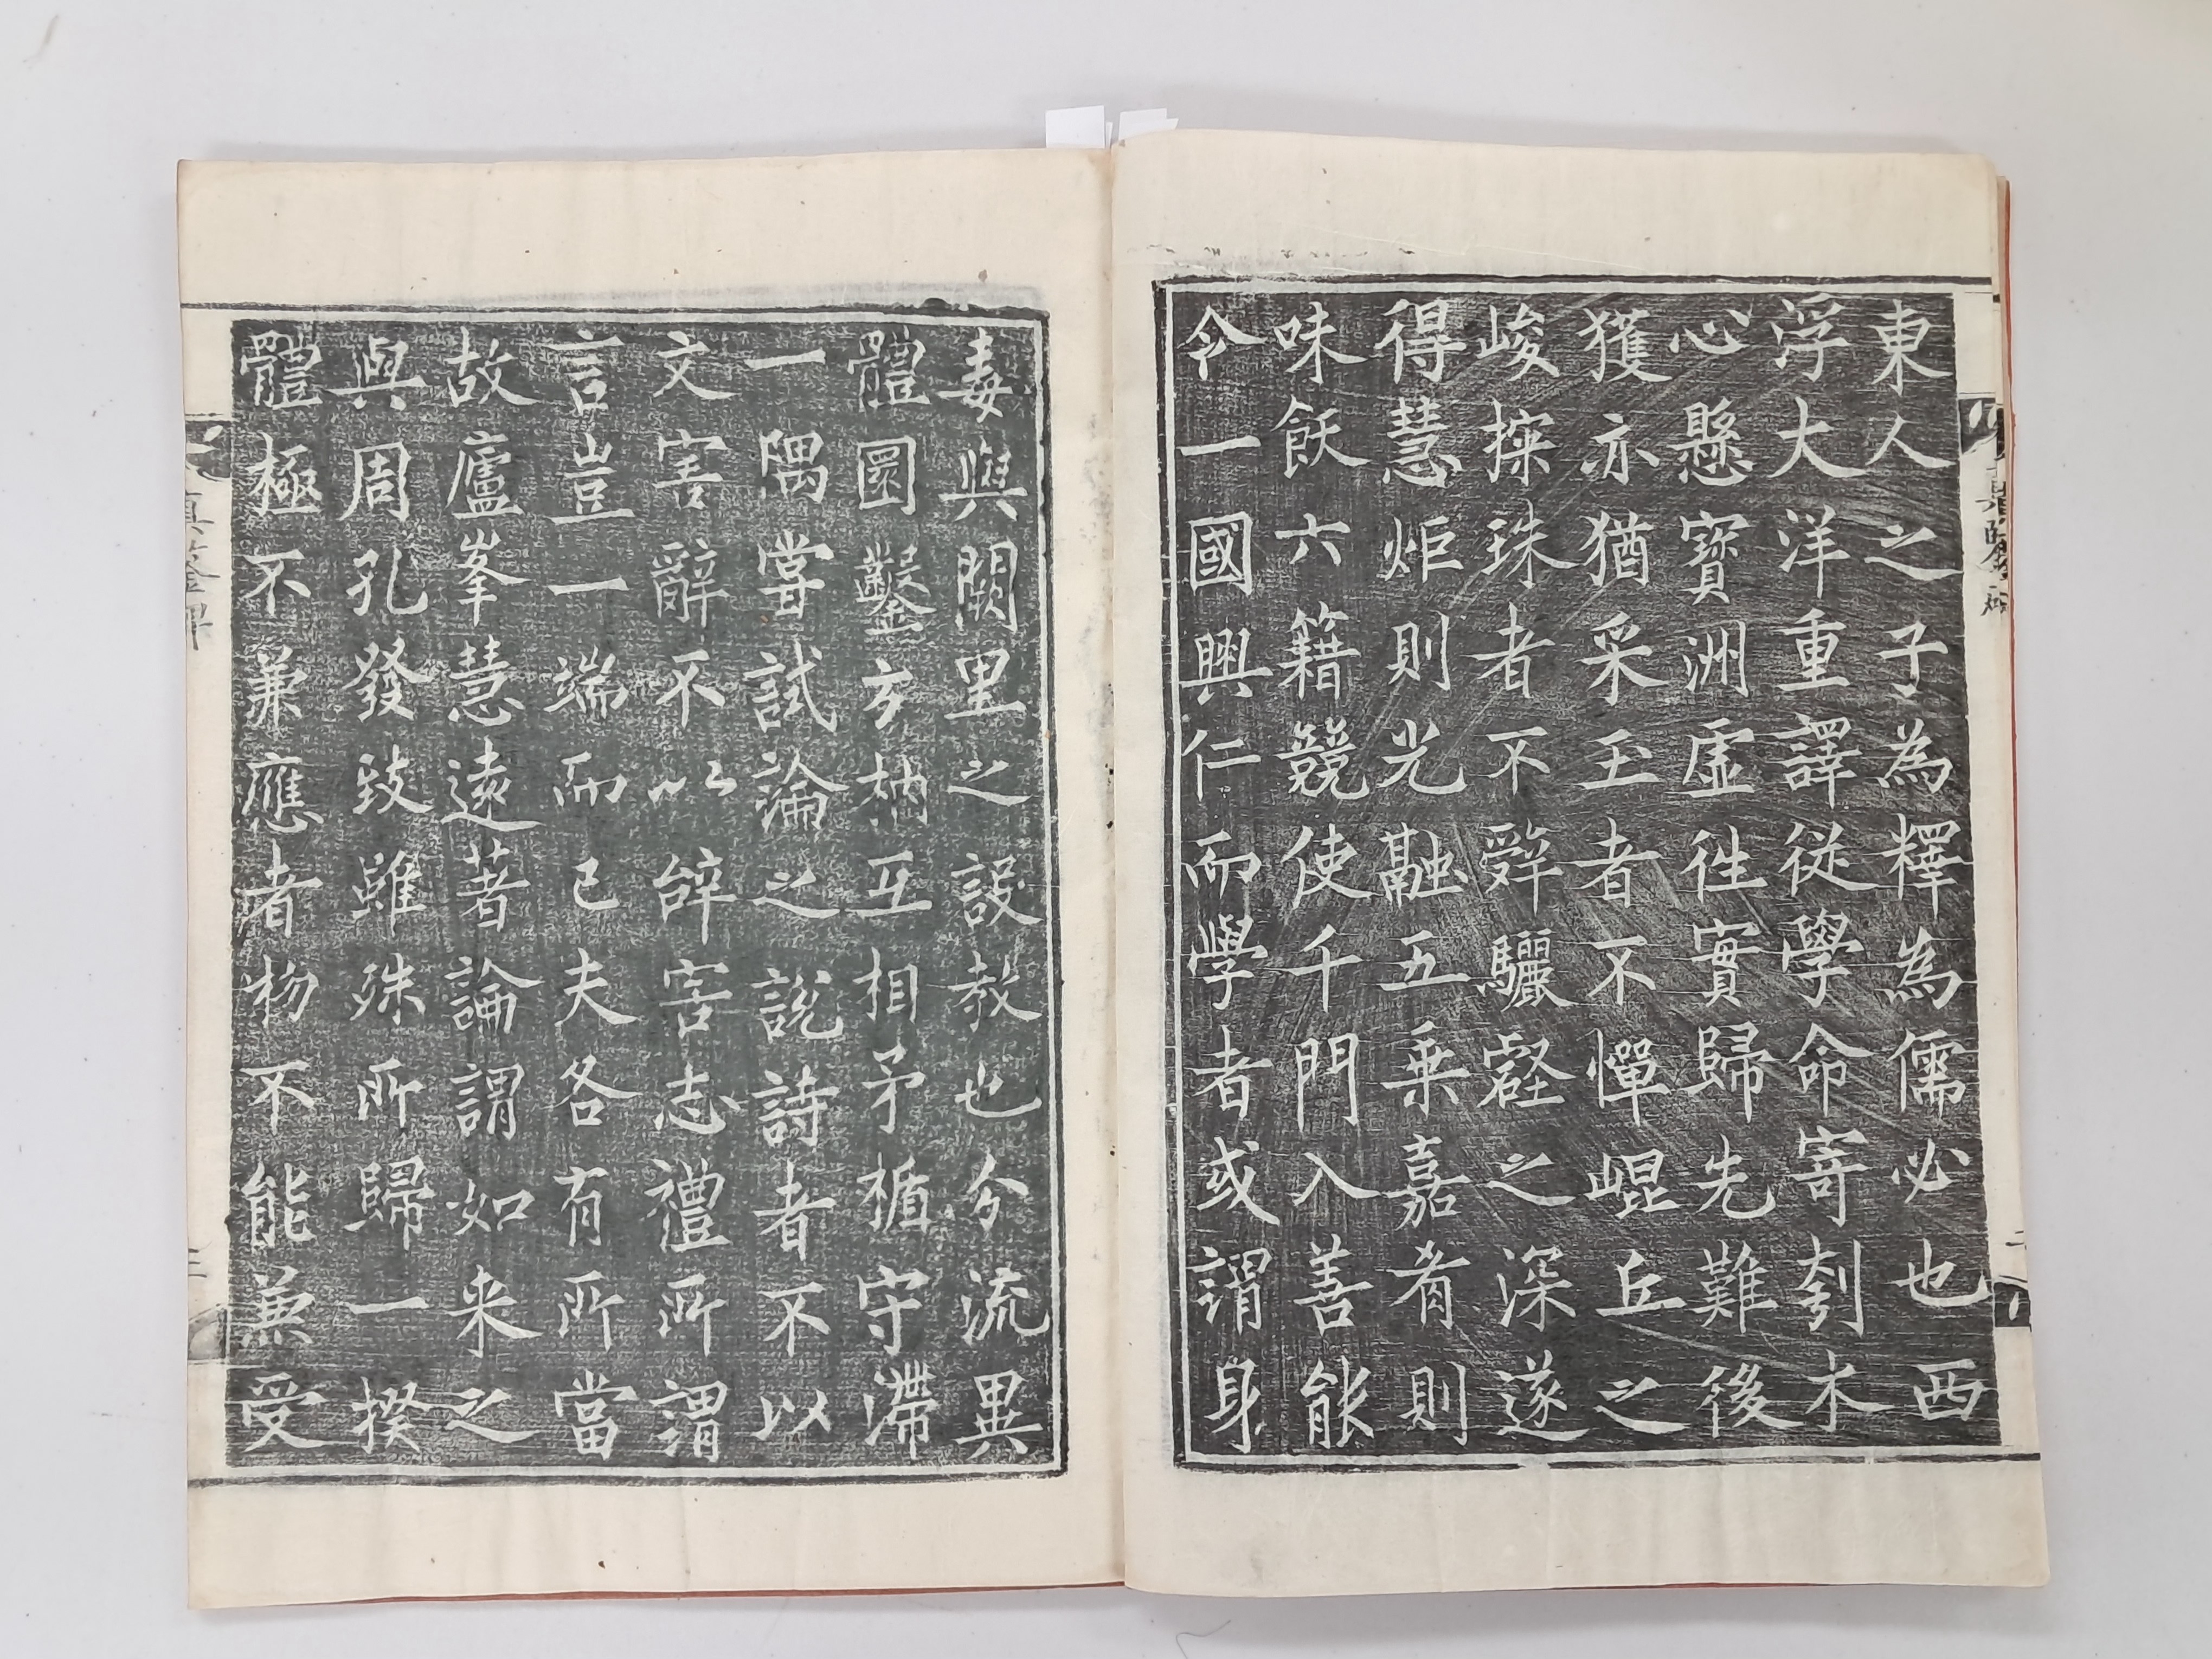 東人之子為釋為儒必也西
浮大洋重譯從學命寄刳木
心懸寶洲虛徃實歸先難後
獲亦猶采玉者不憚崐丘之
峻探珠者不辤驪壑之深遂
得慧炬則光融五乘嘉肴則
味飫六籍競使千門入善能
令一國興仁而學者或謂身
毒與闕里之設教也分流異
體圜鑿方枘互相矛楯守滯
一隅甞試論之說詩者不以
文害辭不以辝害志禮所謂
言豈一端而已夫各有所當
故廬峯慧遠著論謂如来之
與周孔發致雖殊所歸一揆
體極不兼應者物不能兼受
真鑒碑
三